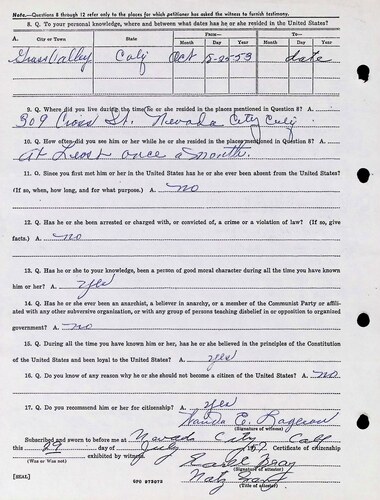 NOTE.—Questions 8 through 12 refer only to the places for which petitioner has asked the witness to furnish testimony.
8. Q. To your personal knowledge, where and between what dates has he or she resided in the United States?
A. City or Town State From— To—
Month Day Year Month Day Year
Grass Valley Calif Oct 5-25-53 date
9. Q. Where did you live during the time he or she resided in the places mentioned in Question 8? A.
309 Cross St. Nevada City Calif
10. Q. How often did you see him or her while he or she resided in the places mentioned in Question 8? A.
at Least once a month.
11. Q. Since you first met him or her in the United States has he or she ever been absent from the United States?
(If so, when, how long, and for what purpose.) A. no
12. Q. Has he or she been arrested or charged with, or convicted of, a crime or a violation of law? (If so, give
facts.) A. no
13. Q. Has he or she to your knowledge, been a person of good moral character during all the time you have known
him or her? A. yes
14. Q. Has he or she ever been an anarchist, a believer in anarchy, or a member of the Communist Party or affili-
ated with any other subversive organization, or with any group of persons teaching disbelief in or opposition to organized
government? A. no
15. Q. During all the time you have known him or her, has he or she believed in the principles of the Constitution
of the United States and been loyal to the United States? A. yes
16. Q. Do you know of any reason why he or she should not become a citizen of the United States? A. no
17. Q. Do you recommend him or her for citizenship? A. yes
(Signature of witness)
Subscribed and sworn to before me at Nevada City Calif
this 29 day of July, Certificate of citizenship
exhibited by witness.
(Was or Was not) (Signature of attestor)
(Title of attestor)
[SEAL] GPO 972072